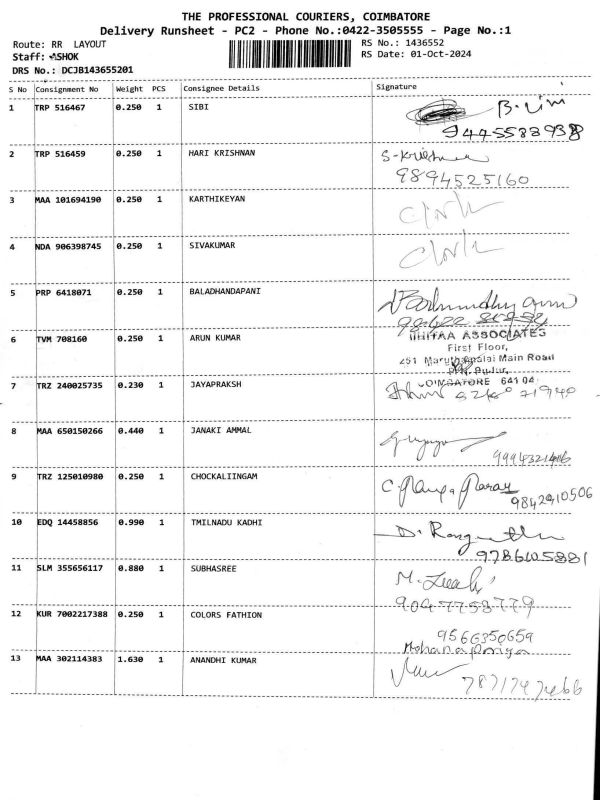 THE PROFESSIONAL COURIERS, COIMBATORE
Delivery Runsheet - PC2 - Phone No.:0422-3505555 - Page No.:1
Route: RR LAYOUT
RS No.: 1436552
Staff: ASHOK
RS Date: 01-Oct-2024
DRS No.: DCJB143655201
S No Consignment No Weight PCS Consignee Details Signature
1 TRP 516467 0.250 1 SIBI
9445588938
2 TRP 516459 0.250 1 HARI KRISHNAN S-Krishnan
9894525160
3 MAA 101694190 0.250 1 KARTHIKEYAN
4 NDA 906398745 0.250 1 SIVAKUMAR
5 PRP 6418071 0.250 1 BALADHANDAPANI
6 TVM 708160 0.250 1 ARUN KUMAR ASSOCIATES
First Floor,
251 Main Road
7 TRZ 240025735 0.230 1 JAYAPRAKSH COIMBATORE 641 04
8 MAA 650150266 0.440 1 JANAKI AMMAL
9 TRZ 125010980 0.250 1 CHOCKALIINGAM
9842910506
10 EDQ 14458856 0.990 1 TMILNADU KADHI
9786105881
11 SLM 355656117 0.880 1 SUBHASREE
9047758779
12 KUR 7002217388 0.250 1 COLORS FATHION 9566350659
Mohanapriya
13 MAA 302114383 1.630 1 ANANDHI KUMAR